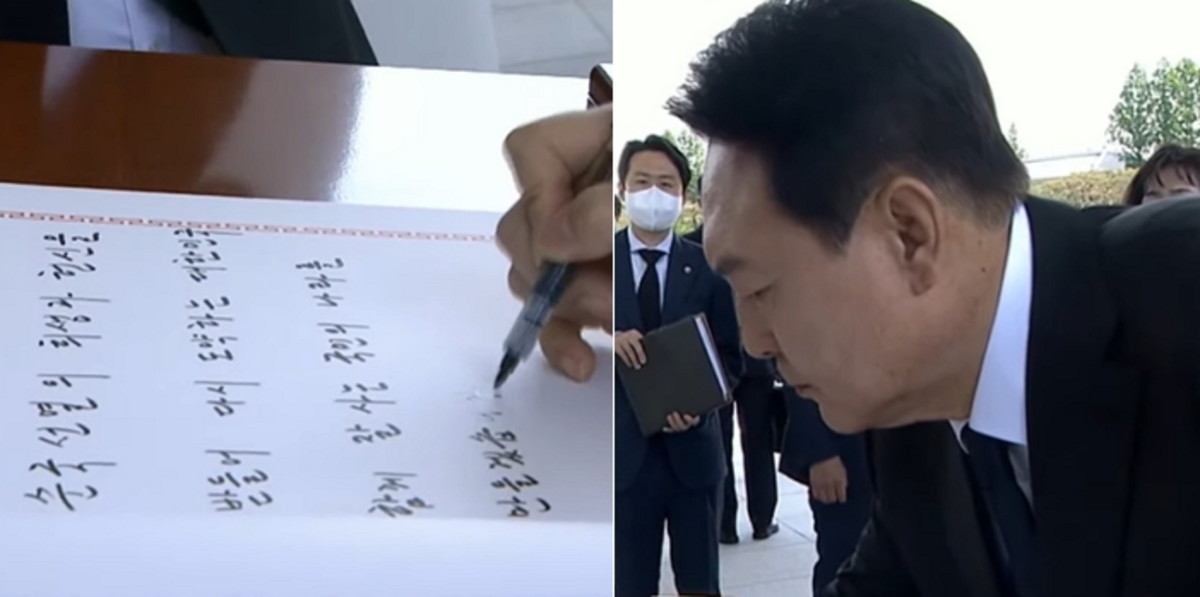 순국선열의 희생과 헌신을
받들어 다시 도약하는 대한민국
함께 잘 사는 국민의 나라를
만들겠습